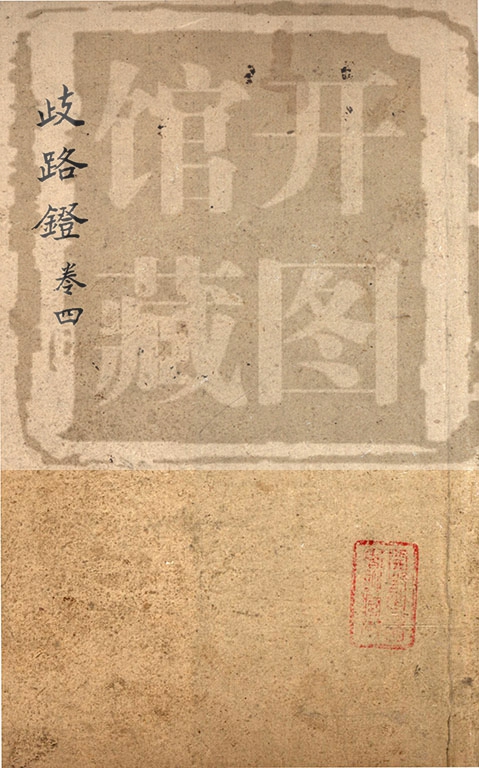 歧路鐙 卷四
开图
馆藏